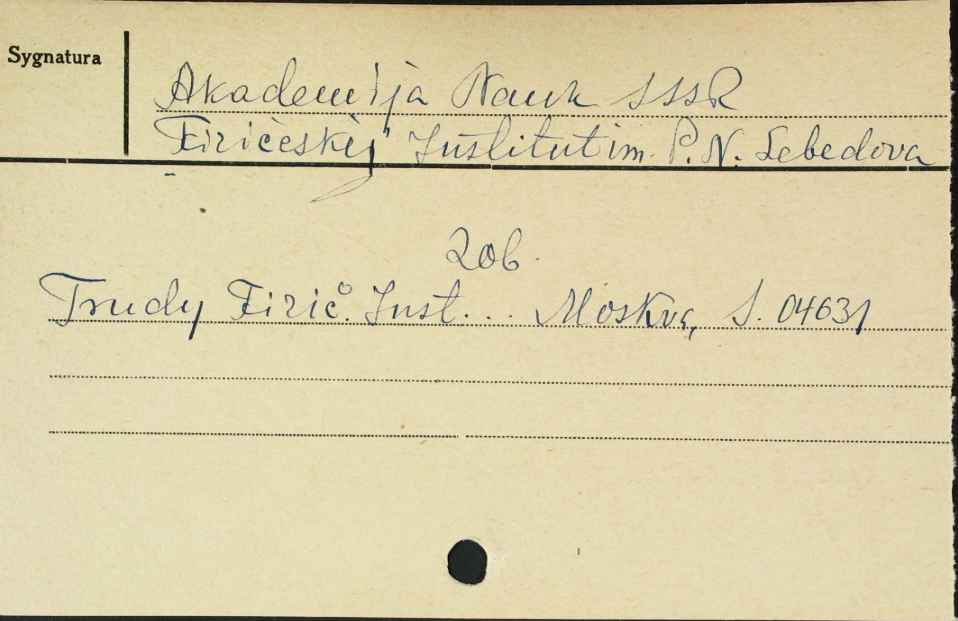 Sygnatura
Akademija Nauk SSSR
Fizičeskij Institut im. P. N. Lebedova
Zob.
Trudy Fizič. Inst... Moskva, S. 04631